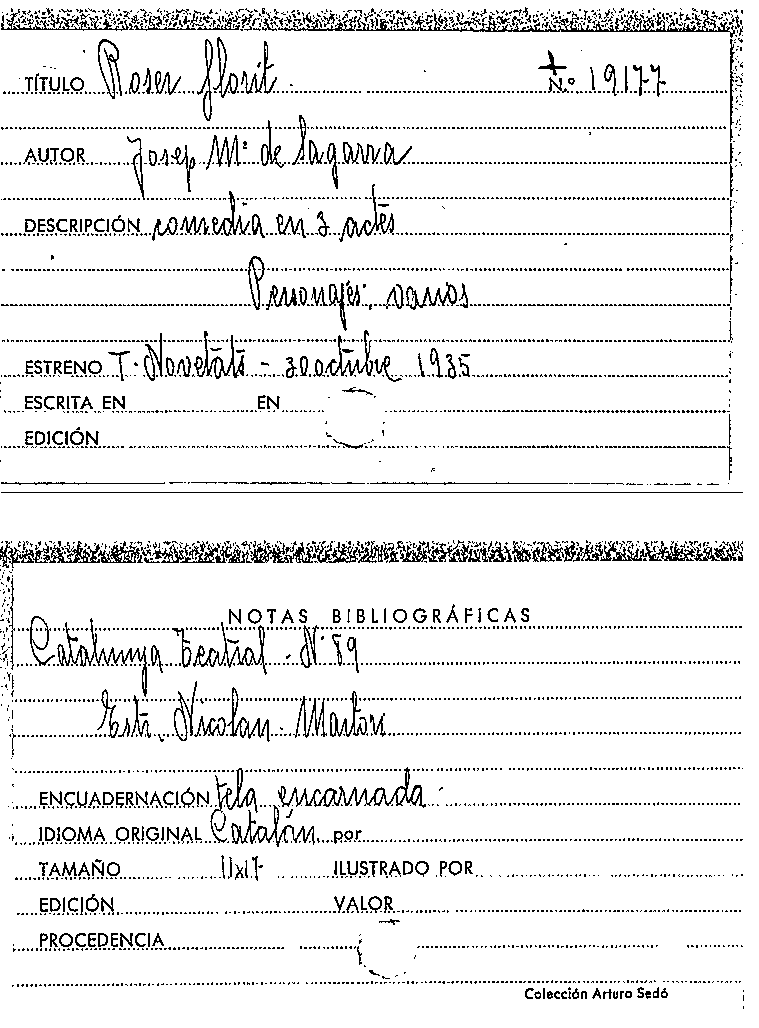 TÍTULO Roser Florit. Nº 19177
AUTOR Josep Mª de Sagarra
DESCRIPCIÓN comedia en 3 actes
Personajes, varios
ESTRENO T. Novetats - 30 octubre 1935
ESCRITA EN EN
EDICIÓN
NOTAS BIBLIOGRÁFICAS
Catalunya Teatral - Nº 89
Nicolau
ENCUADERNACIÓN tela encarnada
IDIOMA ORIGINAL Catalán por
TAMAÑO 11x17 ILUSTRADO POR
EDICIÓN VALOR
PROCEDENCIA
Colección Arturo Sedó